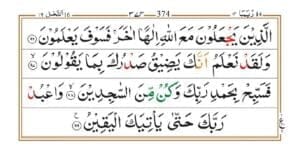 ٣٧٣ 374
الَّذِيْنَ يَجْعَلُوْنَ مَعَ اللّٰهِ اِلٰهًا اٰخَرَ ۚ فَسَوْفَ يَعْلَمُوْنَ ﴿٩٦﴾
وَلَقَدْ نَعْلَمُ اَنَّكَ يَضِيْقُ صَدْرُكَ بِمَا يَقُوْلُوْنَ ﴿٩٧﴾
فَسَبِّحْ بِحَمْدِ رَبِّكَ وَكُنْ مِّنَ السّٰجِدِيْنَ ﴿٩٨﴾ وَاعْبُدْ
رَبَّكَ حَتّٰى يَاْتِيَكَ الْيَقِيْنُ ﴿٩٩﴾